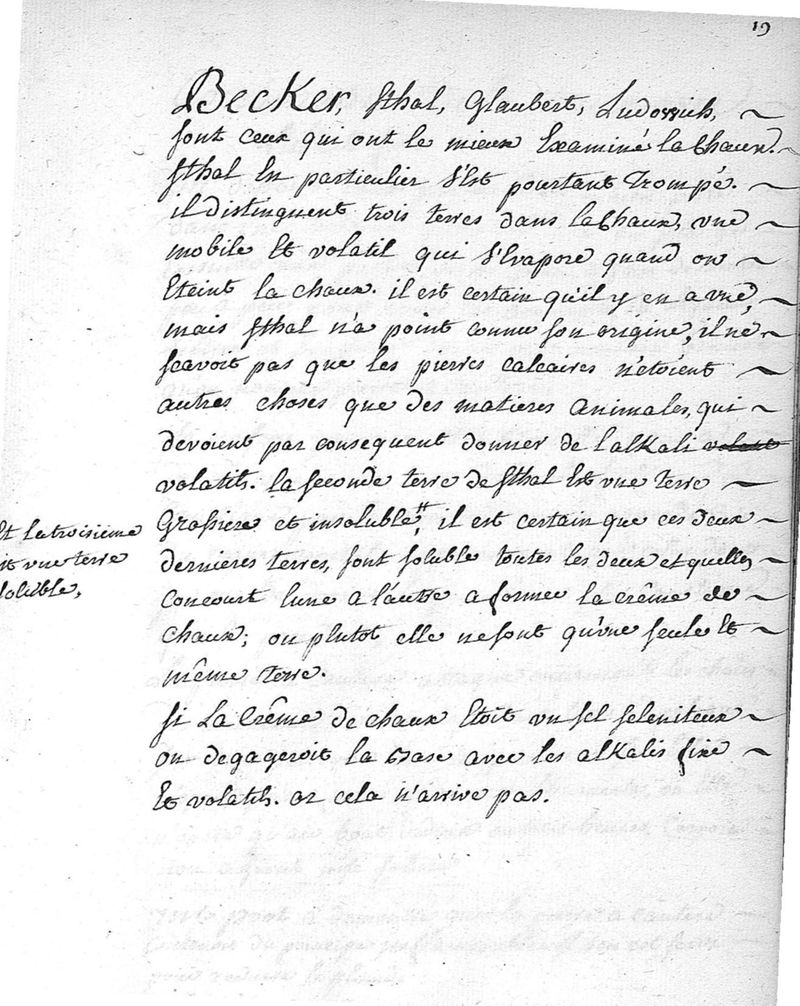 19
Becker, sthal, Glaubert, Ludovvich,
sont ceux qui ont le mieux Examiné la Chaux.
sthal En particulier s'Est pourtant trompé.
il distinguent trois terres dans la Chaux, vne
mobile Et volatil qui s'Evapore quand on
Eteint la chaux. il est certain qu'il y en a vne,
mais sthal n'a point connu son origine, il ne
scavoit pas que les pierres calcaires n'etoient
autres choses que des matieres animales, qui
devoient par consequent donner de l'alkali volatil
volatil. la seconde terre de sthal Est vne terre
Grossiere et insoluble,# il est certain que ces deux
Et la troisieme
vne terre
soluble,
dernieres terres, sont soluble toutes les deux et quelles
concourt lune a l'autre a former la crême de
chaux; ou plutot elle ne sont qu'vne seule Et
même terre.
si la Crême de chaux Etoit vn sel seleniteux
on degageroit la Base avec les alkalis fixe
Et volatils. or cela n'arrive pas.